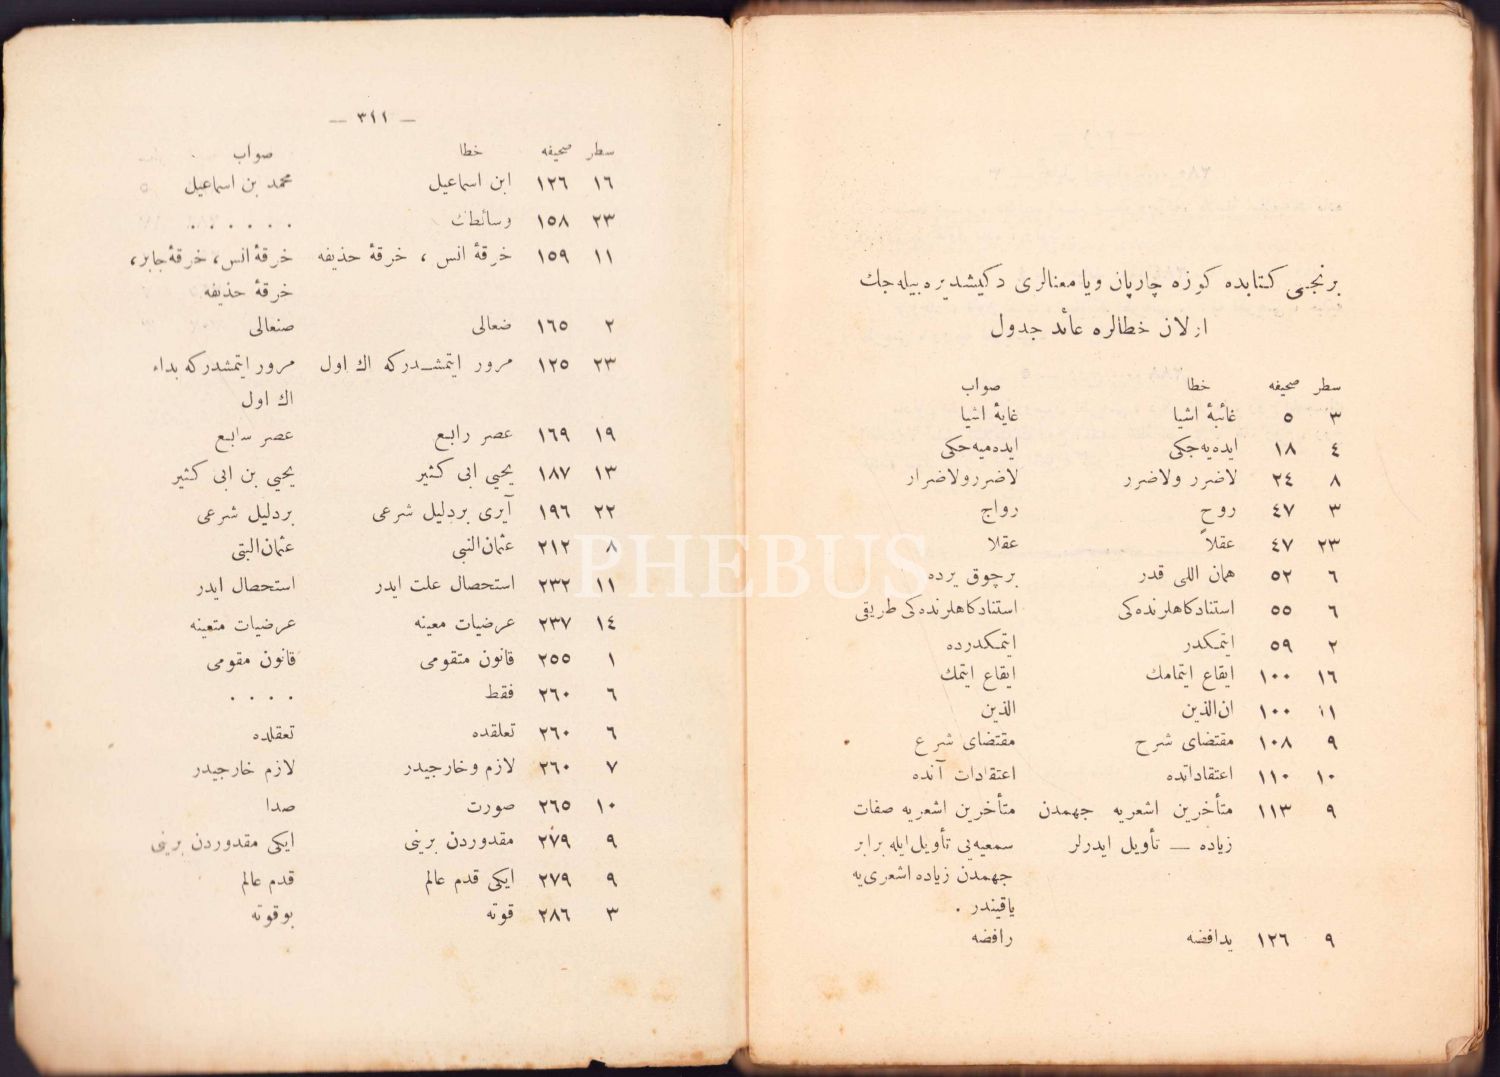 برنجی كتابده كوزه چارپان ویا معنالری دكیشدیره بیله جك
اولان خطالره عائد جدول
سطر صحیفه خطا صواب
٣ ٥ غائبۀ اشیا غایۀ اشیا
٤ ١٨ ایده‌یه‌جكی ایده‌میه‌جكی
٨ ٢٤ لاضرر ولاضرر لاضررولاضرار
٣ ٤٧ روح رواج
٢٣ ٤٧ عقلاً عقلا
٦ ٥٢ همان اللی قدر برچوق یرده
٦ ٥٥ استنادكاهلرنده‌كی استنادكاهلرنده‌كی طریقی
٢ ٥٩ ایتمكدر ایتمكدرده
١٦ ١٠٠ ایقاع ایتمامك ایقاع ایتمك
١١ ١٠٠ ان‌الذین الذین
٩ ١٠٨ مقتضای شرح مقتضای شرع
١٠ ١١٠ اعتقاداتده اعتقادات آنده
٩ ١١٣ متأخرین اشعریه جهمدن متأخرین اشعریه صفات
زیاده — تأویل ایدرلر سمعیه‌یی تأویل‌ایله برابر
جهمدن زیاده اشعری‌یه
یاقیندر .
٩ ١٢٦ یدافضه رافضه
— ٣١١ —
سطر صحیفه خطا صواب
١٦ ١٢٦ ابن اسماعیل محمد بن اسماعیل
٢٣ ١٥٨ وسائطات . . . . . .
١١ ١٥٩ خرقۀ انس ، خرقۀ حذیفه خرقۀ انس، خرقۀ جابر،
خرقۀ حذیفه
٢ ١٦٥ ضعالی صنعالی
٢٣ ١٢٥ مرور ایتمشدركه اك اول مرور ایتمشدركه بداء
اك اول
١٩ ١٦٩ عصر رابع عصر سابع
١٣ ١٨٧ یحیی ابی كثیر یحیی بن ابی كثیر
٢٢ ١٩٦ آیری بردلیل شرعی بردلیل شرعی
٨ ٢١٢ عثمان‌النبی عثمان‌البتی
١١ ٢٣٢ استحصال علت ایدر استحصال ایدر
١٤ ٢٣٧ عرضیات معینه عرضیات متعینه
١ ٢٥٥ قانون متقومی قانون مقومی
٦ ٢٦٠ فقط . . . .
٦ ٢٦٠ تعلقده تعقلده
٧ ٢٦٠ لازم وخارجیدر لازم خارجیدر
١٠ ٢٦٥ صورت صدا
٩ ٢٧٩ مقدوردن برینی ایكی مقدوردن برینی
٩ ٢٧٩ ایكی قدم عالم قدم عالم
٣ ٢٨٦ قوته بوقوته
PHEBUS